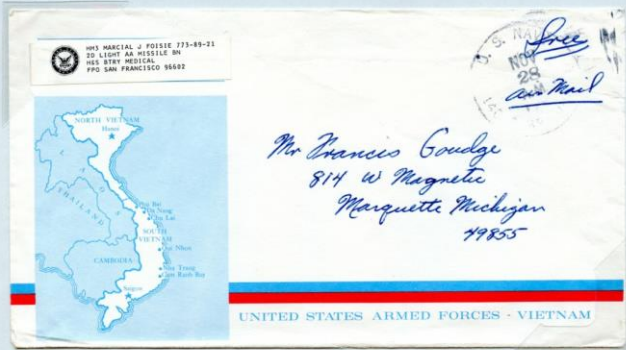 HM3 MARCIAL J FOISIE 773-89-21
2D LIGHT AA MISSILE BN
H&S BTRY MEDICAL
FPO SAN FRANCISCO 96602
U. S. NAV
NOV
28
AM
Free
Air Mail
NORTH VIETNAM
Hanoi
LAOS
THAILAND
Phu Bai
Da Nang
Chu Lai
SOUTH
VIETNAM
Qui Nhon
CAMBODIA
Nha Trang
Cam Ranh Bay
Saigon
Mr Francis Goudge
814 W Magnetic
Marquette Michigan
49855
UNITED STATES ARMED FORCES - VIETNAM